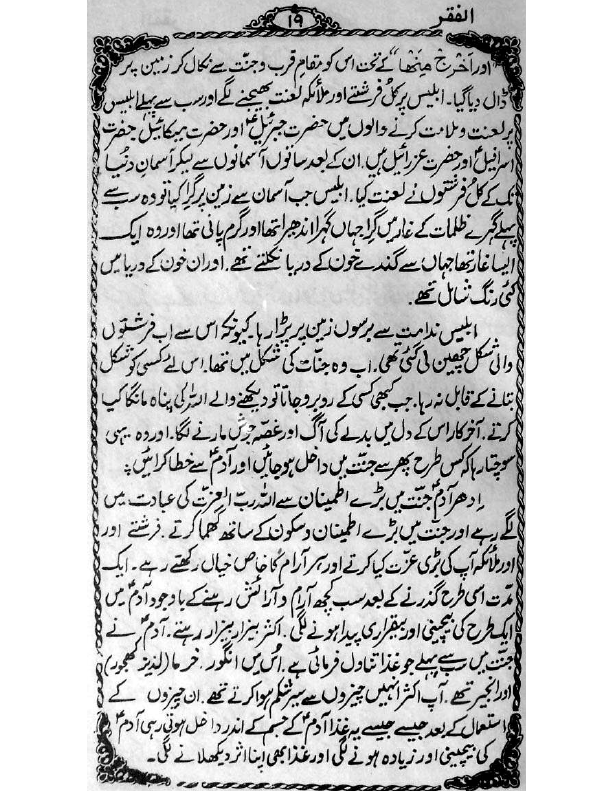 الفقر
۱۹
اور اُخرج مِنھا" کے تحت اس کو مقامِ قرب و جنّت سے نکال کر زمین پر
ڈال دیا گیا۔ ابلیس پر کل فرشتے اور ملائکہ لعنت بھیجنے لگے اور سب سے پہلے ابلیس
پر لعنت و ملامت کرنے والوں میں حضرت جبرئیلؑ اور حضرت میکائیلؑ حضرت
اسرافیلؑ اور حضرت عزرائیلؑ ہیں۔ ان کے بعد ساتوں آسمانوں سے لیکر آسمانِ دنیا
تک کے کل فرشتوں نے لعنت کیا۔ ابلیس جب آسمان سے زمین پر گرا گیا تو وہ سب سے
پہلے گہرے ظلمات کے غار میں گرا جہاں گہرا اندھیرا تھا اور گرم پانی تھا اور وہ ایک
ایسا غار تھا جہاں سے گندے خون کے دریا نکلتے تھے۔ اور ان خون کے دریا میں
کئی رنگ شامل تھے۔
ابلیس ندامت سے برسوں زمین پر پڑا رہا۔ کیونکہ اس سے اب فرشتوں
والی شکل چھین لی گئی تھی۔ اب وہ جنّات کی شکل میں تھا۔ اس لئے کسی کو شکل
بتانے کے قابل نہ رہا۔ جب کبھی کسی کے روبرو جاتا تو دیکھنے والے اللہ کی پناہ مانگا کیا
کرتے۔ آخر کار اس کے دل میں بدلے کی آگ اور غصّہ جوش مارنے لگا۔ اور وہ یہی
سوچتا رہا کہ کس طرح پھر سے جنّت میں داخل ہو جائیں اور آدمؑ سے خطا کرائیں؟
اِدھر آدمؑ جنّت میں بڑے اطمینان سے اللہ ربّ العزّت کی عبادت میں
لگے رہے اور جنّت میں بڑے اطمینان و سکون کے ساتھ گھما کرتے۔ فرشتے اور
اور ملائکہ آپ کی بڑی عزّت کیا کرتے اور ہر آرام کا خاص خیال رکھتے رہے۔ ایک
مدّت اسی طرح گذرنے کے بعد سب کچھ آرام و آرائش رہنے کے باوجود آدمؑ میں
ایک طرح کی بیچینی اور بیقراری پیدا ہونے لگی۔ اکثر بیزار بیزار رہتے۔ آدمؑ نے
جنّت میں سب سے پہلے جو غذا تناول فرمائی ہے۔ اُس میں انگور۔ خرما (لذیذ کھجور)
اور انجیر تھے۔ آپ اکثر انہیں چیزوں سے سیر شکم ہوا کرتے تھے۔ ان چیزوں کے
استعمال کے بعد جیسے جیسے یہ غذا آدمؑ کے جسم کے اندر داخل ہوتی رہی آدمؑ
کی بیچینی اور زیادہ ہونے لگی اور غذا بھی اپنا اثر دیکھلانے لگی۔